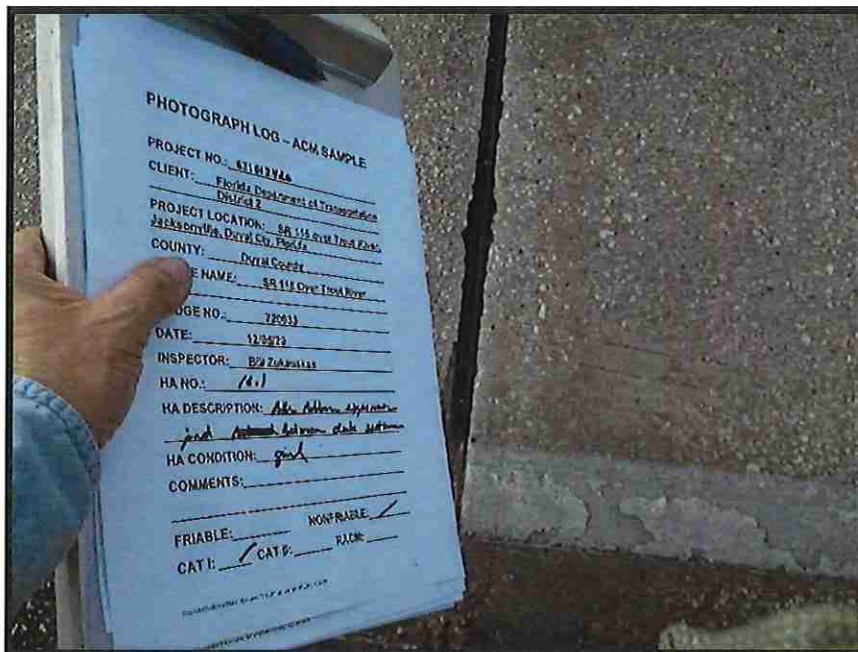 PHOTOGRAPH LOG – ACM SAMPLE
PROJECT NO.:
CLIENT: Florida Department of Transportation
District 2
PROJECT LOCATION: SR 115 over Trout River,
Jacksonville, Duval Cty, Florida
COUNTY: Duval County
E NAME: SR 115 Over Trout River
DGE NO.: 720033
DATE:
INSPECTOR: Bill Zukauskas
HA NO.:
HA DESCRIPTION:
joint between
HA CONDITION: good
COMMENTS:
FRIABLE: NONFRIABLE: /
CAT I: / CAT II: RACM: